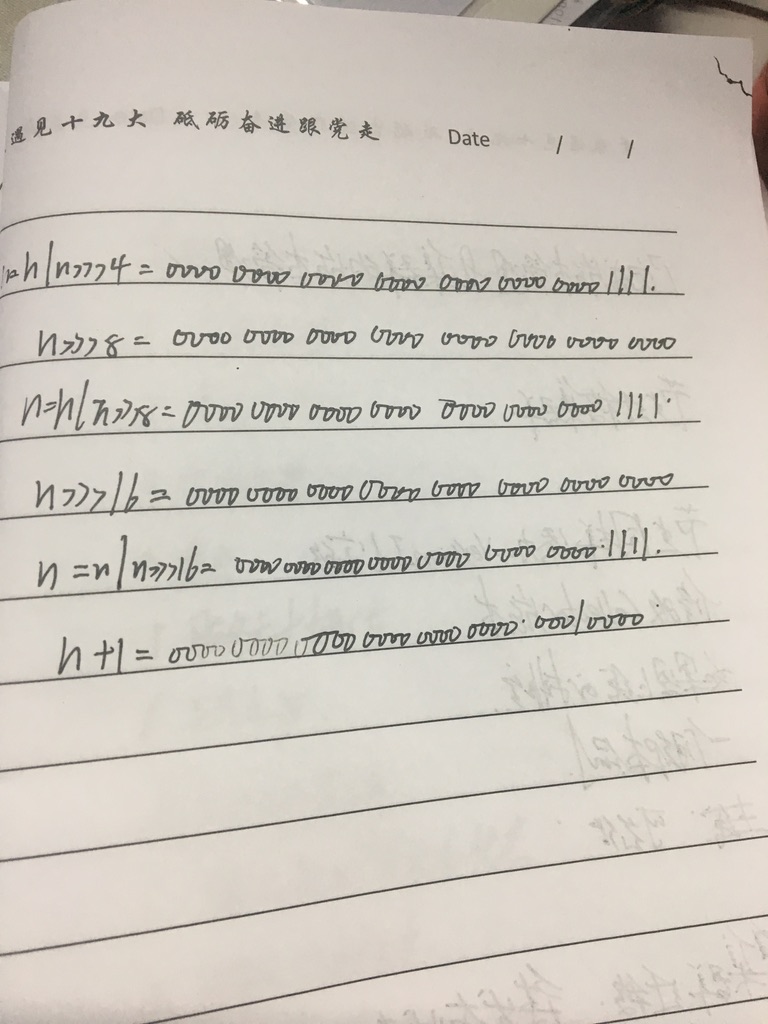 遇见十九大 砥砺奋进跟党走 Date / /
n=n|n>>>4 = 0000 0000 0000 0000 0000 0000 0000 1111.
n>>>8 = 0000 0000 0000 0000 0000 0000 0000 0000
n=n|n>>>8= 0000 0000 0000 0000 0000 0000 0000 1111.
n>>>16 = 0000 0000 0000 0000 0000 0000 0000 0000
n=n|n>>>16= 0000 0000 0000 0000 0000 0000 0000 1111.
n+1 = 0000 0000 0000 0000 0000 0000 0001 0000